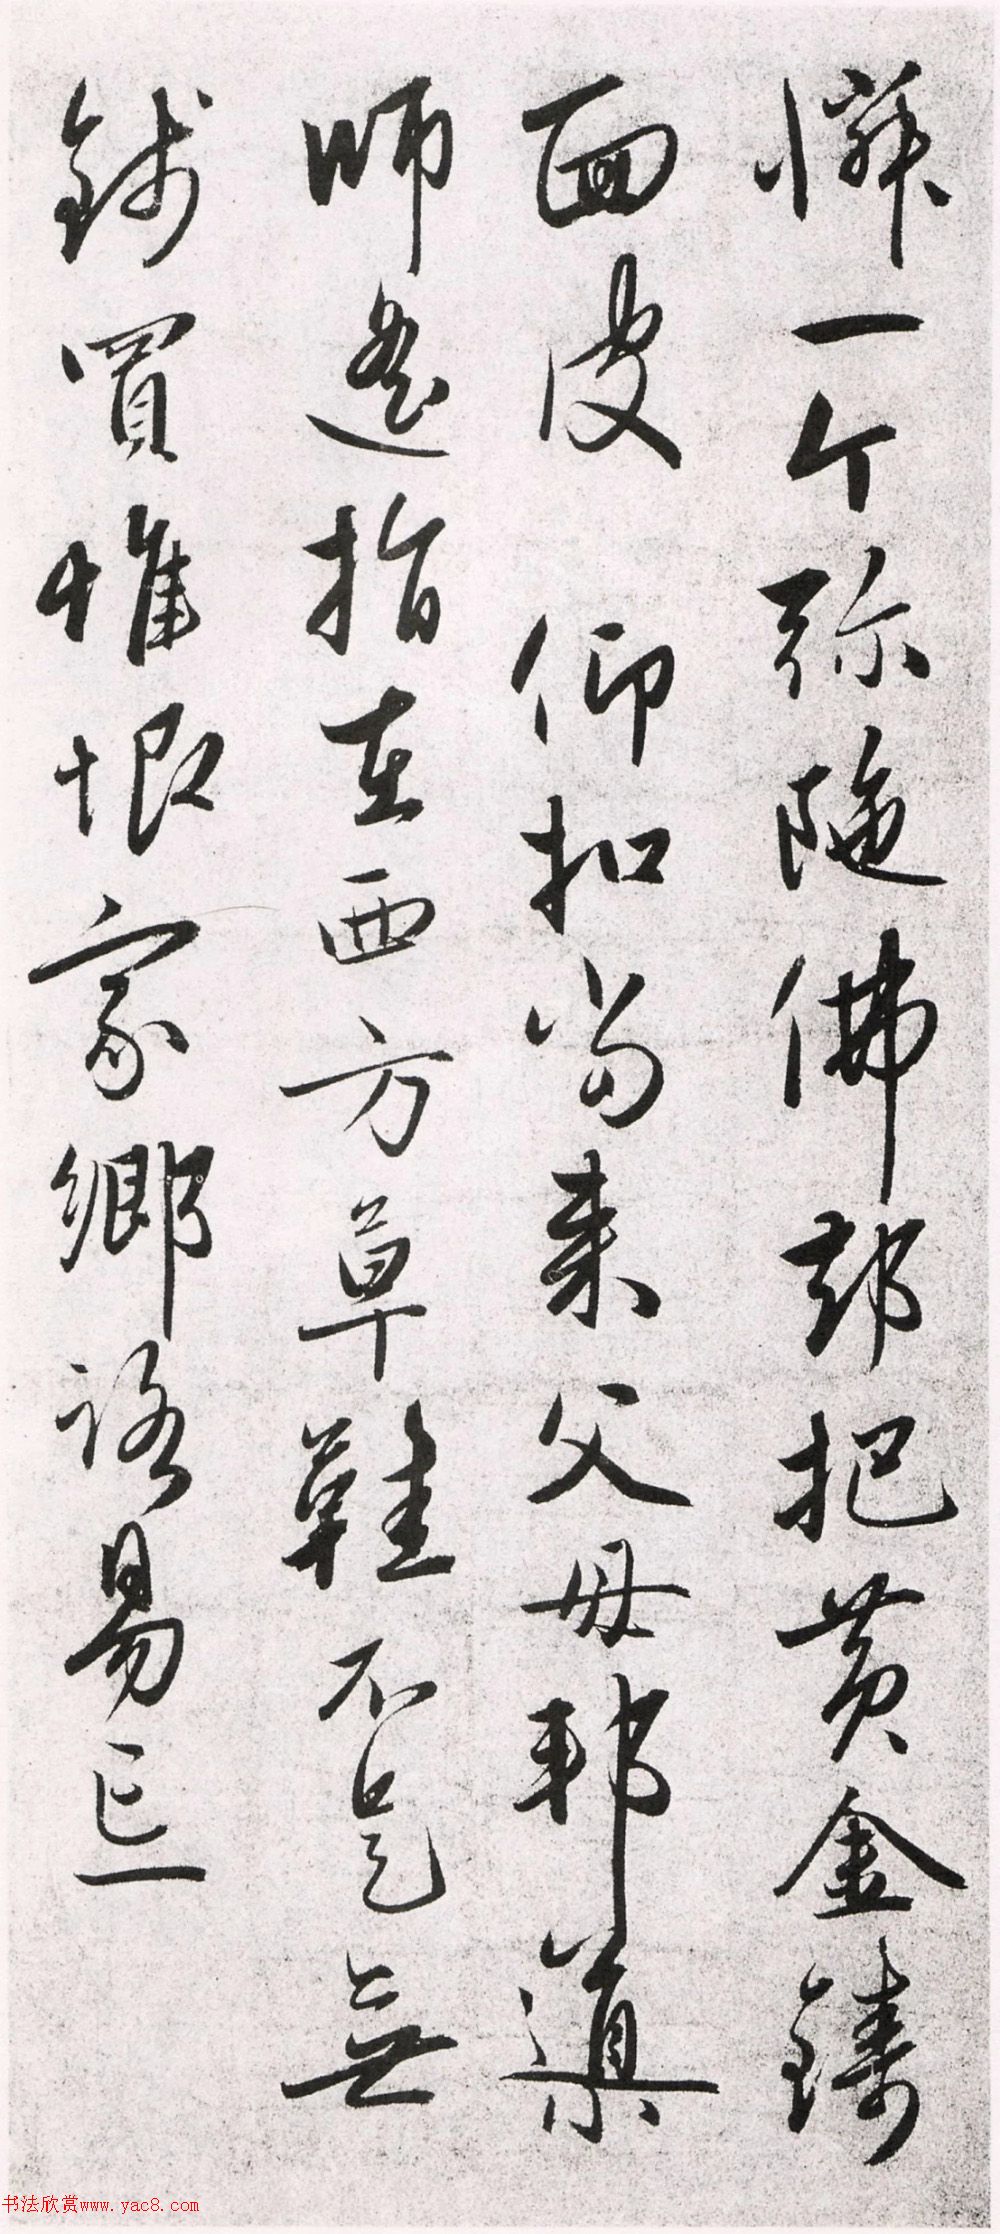 憐一个弥陁佛却把黄金鑄
面皮 仰扣當来父母邦導
師遙指在西方草鞋不是無
錢買惟恨家鄉路易忘
书法欣赏www.yac8.com